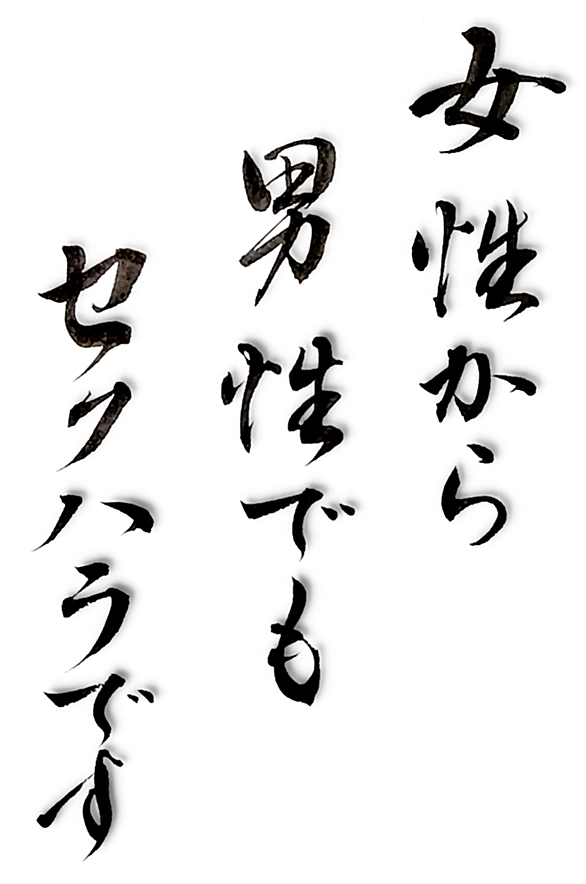 女性から
男性でも
セクハラです